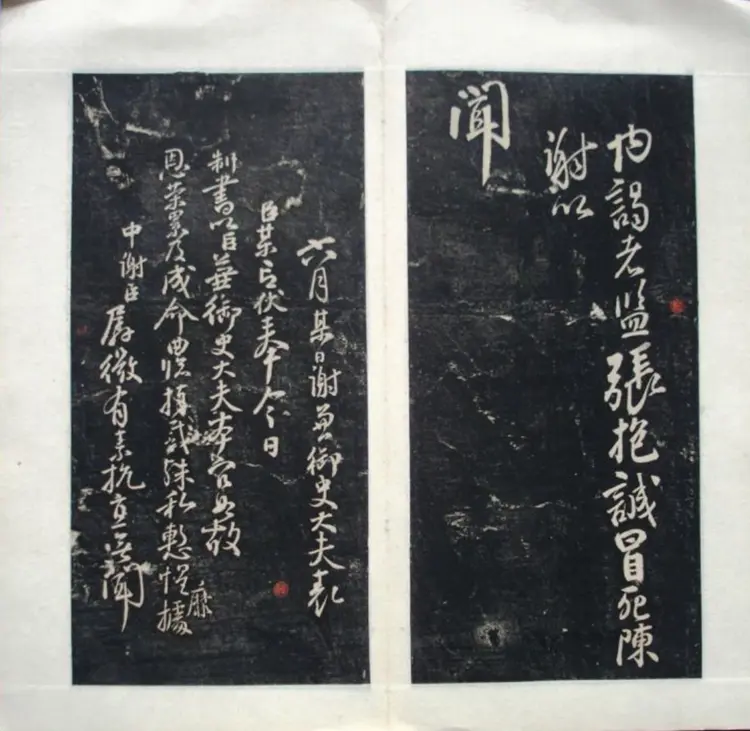 内謁者監張抱誠冒死陳
謝以
聞
六月某日謝兼御史大夫表
臣某言伏奉今日
制書以臣兼御史大夫本官如故
恩榮累及成命曲臨捧戴殊私慙惶靡據
中謝臣孱微有素抗直無聞